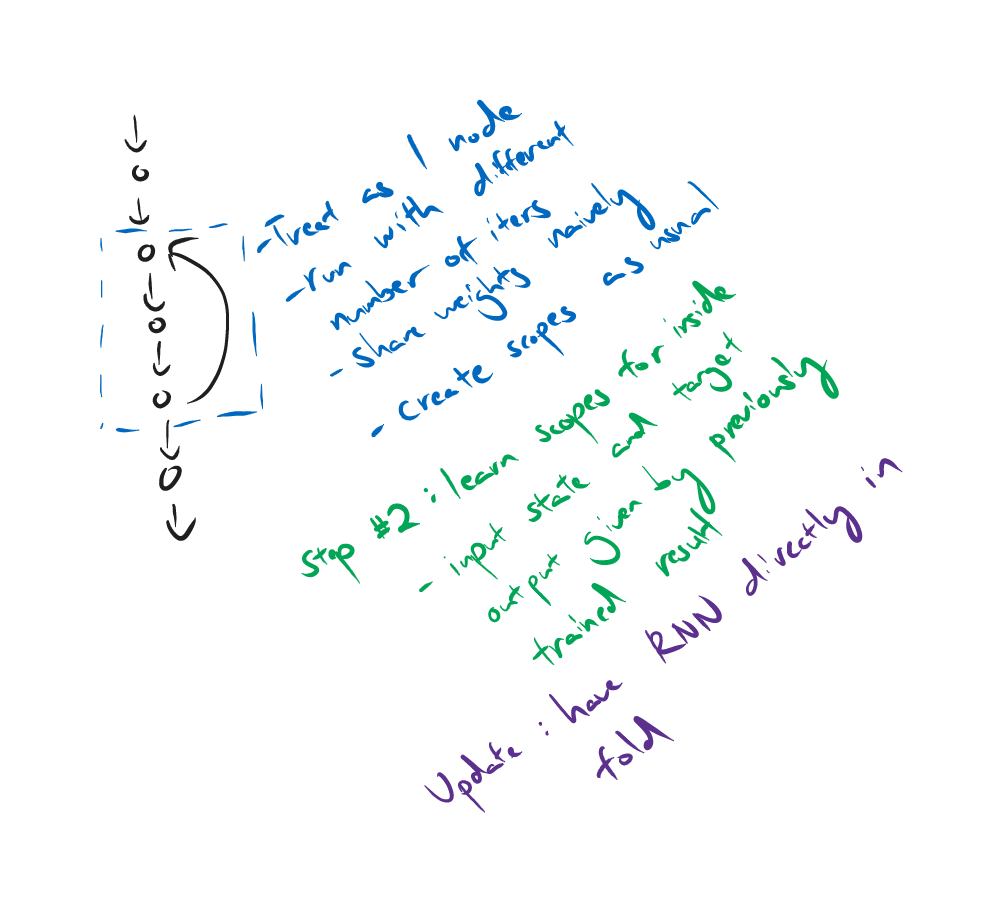 -Treat as 1 node
-run with different
number of iters
-share weights naively
-create scopes as usual
Step #2: learn scopes for inside
- input state and target
output given by previously
trained result
Update: have RNN directly in
fold